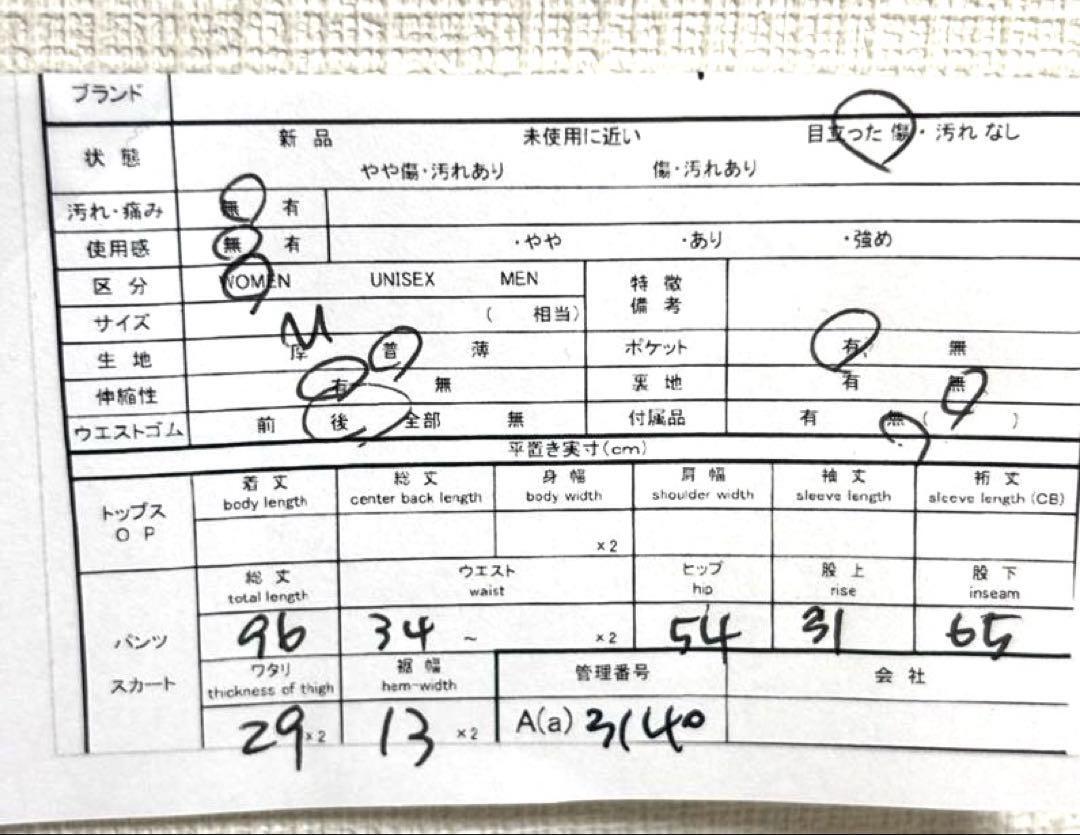 ブランド
状態 新品 未使用に近い 目立った傷・汚れなし
やや傷・汚れあり 傷・汚れあり
汚れ・痛み 無 有
使用感 無 有 ・やや ・あり ・強め
区分 WOMEN UNISEX MEN 特徴備考
サイズ M ( 相当)
生地 厚 普 薄 ポケット 有 無
伸縮性 有 無 裏地 有 無
ウエストゴム 前 後 全部 無 付属品 有 無 ( )
平置き実寸(cm)
トップス OP 着丈 総丈 身幅 肩幅 袖丈 裄丈
body length center back length body width shoulder width sleeve length sleeve length (CB)
×2
パンツ スカート 総丈 ウエスト ヒップ 股上 股下
total length waist hip rise inseam
96 34 ~ ×2 54 31 65
ワタリ 裾幅 管理番号 会社
thickness of thigh hem-width
29 ×2 13 ×2 A(a) 3140